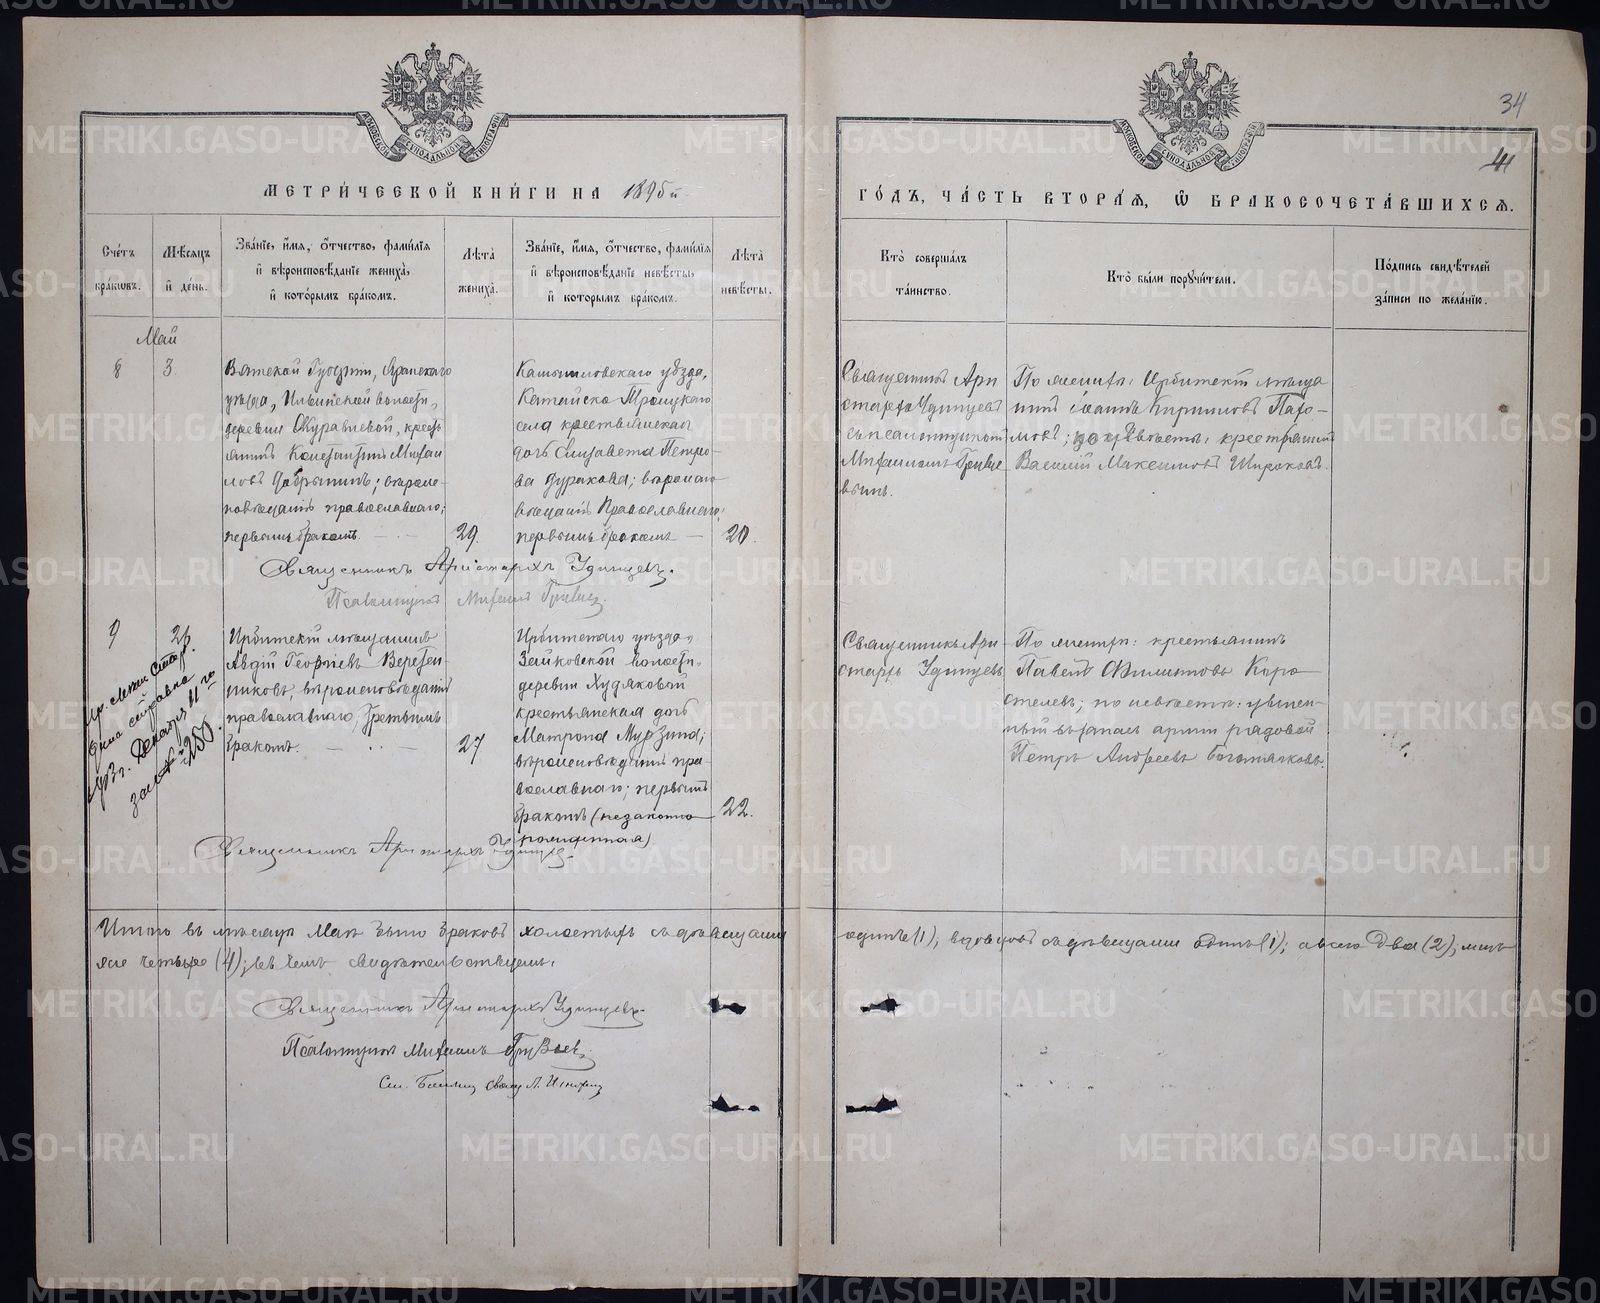 34
41
МЕТРИЧЕСКОЙ КНИГИ НА 1895й
ГОДЪ, ЧАСТЬ ВТОРАЯ, Ѡ БРАКОСОЧЕТАВШИХСЯ.
Счетъ браковъ.
Мѣсяцъ и день.
Званіе, имя, отчество, фамилія
и вѣроисповѣданіе жениха,
и которымъ бракомъ.
Лѣта
жениха.
Званіе, имя, отчество, фамилія
и вѣроисповѣданіе невѣсты,
и которымъ бракомъ.
Лѣта
невѣсты.
Кто совершалъ
таинство.
Кто были поручители.
Подпись свидѣтелей
записи по желанію.
Май
8
3
Вятской Губерніи, Яранскаго
уѣзда, Ильинской волости,
деревни Журавлевой, кресть
янинъ Константинъ Михаи
ловъ Добрынинъ; вѣроис-
повѣданія православнаго;
первымъ бракомъ.
29.
Камышловскаго уѣзда,
Катайско-Троицкаго
села крестьянская
дочь Елизавета Петро-
ва Дуракова; вѣроиспо
вѣданія Православнаго;
первымъ бракомъ
20.
Священникъ Ари
стархъ Удинцевъ
съ псаломщикомъ
Михаиломъ Грив
вымъ.
По женихѣ: Ирбитскій мѣща
нинъ Іоаннъ Кирилловъ Пахо-
мовъ; по невѣстѣ: крестьянинъ
Василій Максимовъ Широковъ.
Священникъ Аристархъ Удинцевъ.
Псаломщикъ Михаилъ
9
26.
Ирбитскій мѣщанинъ
Авдій Георгіевъ Веретен-
никовъ, вѣроисповѣданія
православнаго, третьимъ
бракомъ.
27
Ирбитскаго уѣзда,
Зайковской волости,
деревни Худяковой
крестьянская дочь
Матрона Мурзина;
вѣроисповѣданія пра-
вославнаго; первымъ
бракомъ (незаконно
рожденная)
22.
Священникъ Ари
стархъ Удинцевъ
По женихѣ: крестьянинъ
Павелъ Филиповъ Коро
стелевъ; по невѣстѣ: уволен-
ный въ запасъ арміи рядовой
Петръ Андреевъ Богомяковъ.
справка
Декабря 11 го
за № 250.
Священникъ Аристархъ Удинцевъ
Итого въ мѣсяцѣ Маѣ было браковъ холостыхъ съ дѣвицами
одинъ (1), вдовцовъ съ дѣвицами одинъ (1); а всего два (2); лицъ
же четыре (4); въ чемъ свидѣтельствуемъ.
Священникъ Аристархъ Удинцевъ.
Псаломщикъ Михаилъ
METRIKI.GASO-URAL.RU